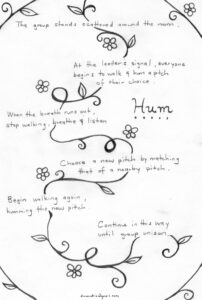 The group stands scattered around the room.
At the leader's signal, everyone
begins to walk & hum a pitch
of their choice.
Hum
When the breath runs out,
stop walking, breathe & listen
Choose a new pitch by matching
that of a nearby pitch.
Begin walking again,
humming the new pitch.
Continue in this way
until group unison.